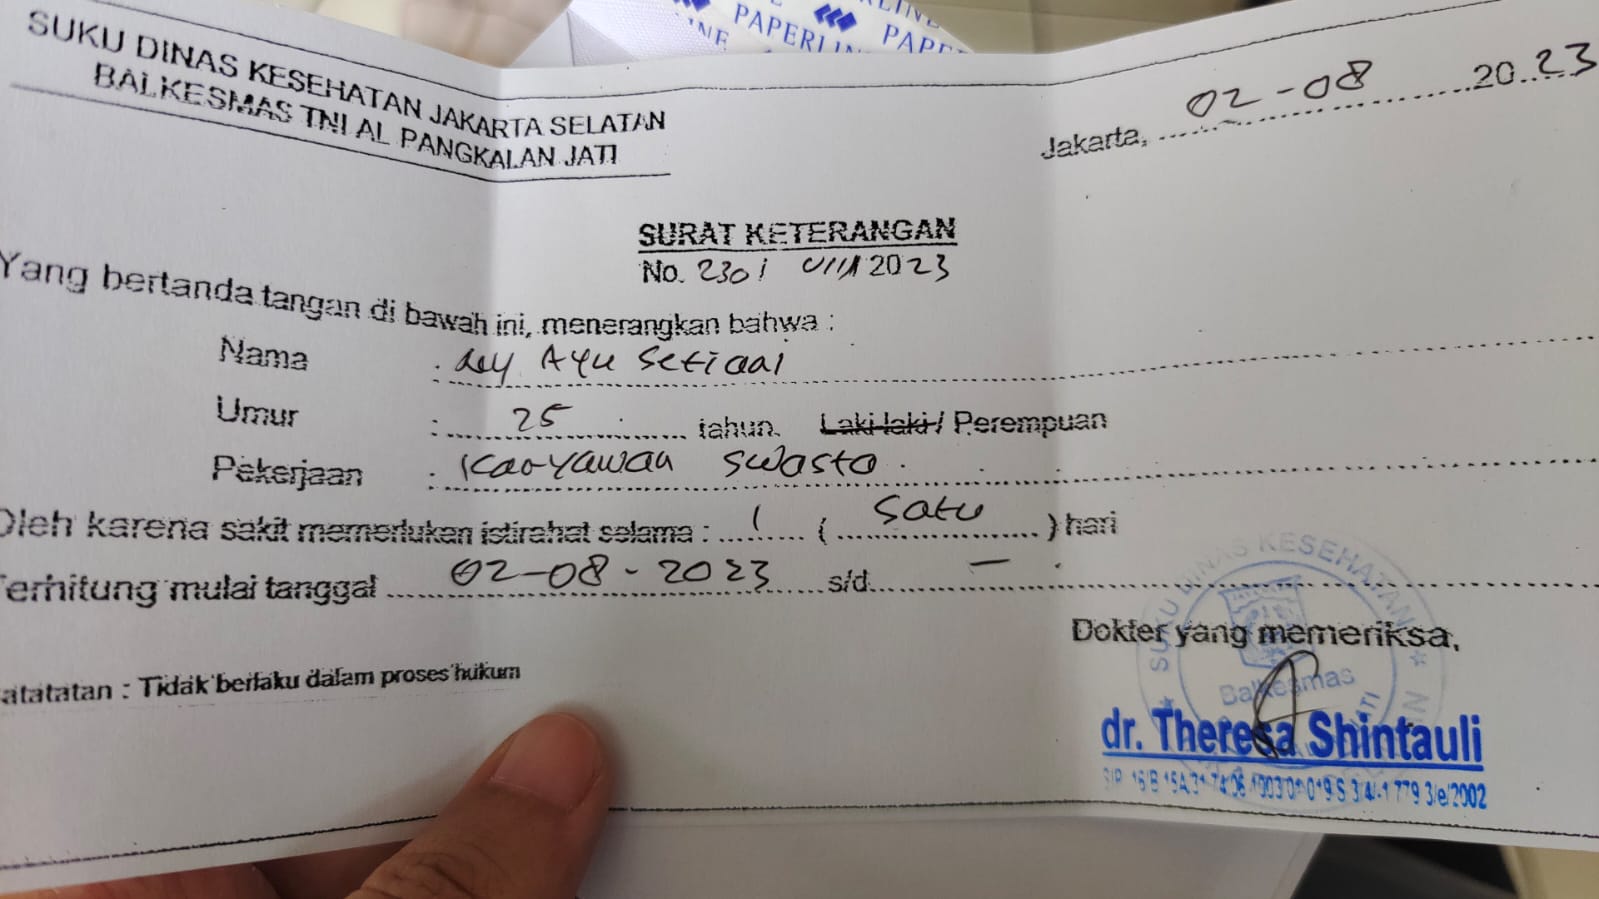 PAPERLINE
SUKU DINAS KESEHATAN JAKARTA SELATAN
BALKESMAS TNI AL PANGKALAN JATI
Jakarta, 02-08 2023
SURAT KETERANGAN
No. 230 / VIII 2023
Yang bertanda tangan di bawah ini, menerangkan bahwa :
Nama : Ayu Setiaai
Umur : 25 tahun. Laki-laki / Perempuan
Pekerjaan : Karyawan Swasta
Oleh karena sakit memerlukan istirahat selama : 1 ( Satu ) hari
Terhitung mulai tanggal 02-08-2023 s/d. -
atatatan : Tidak berlaku dalam proses hukum
Dokter yang memeriksa,
SUKU DINAS KESEHATAN
Balkesmas
dr. Theresa Shintauli